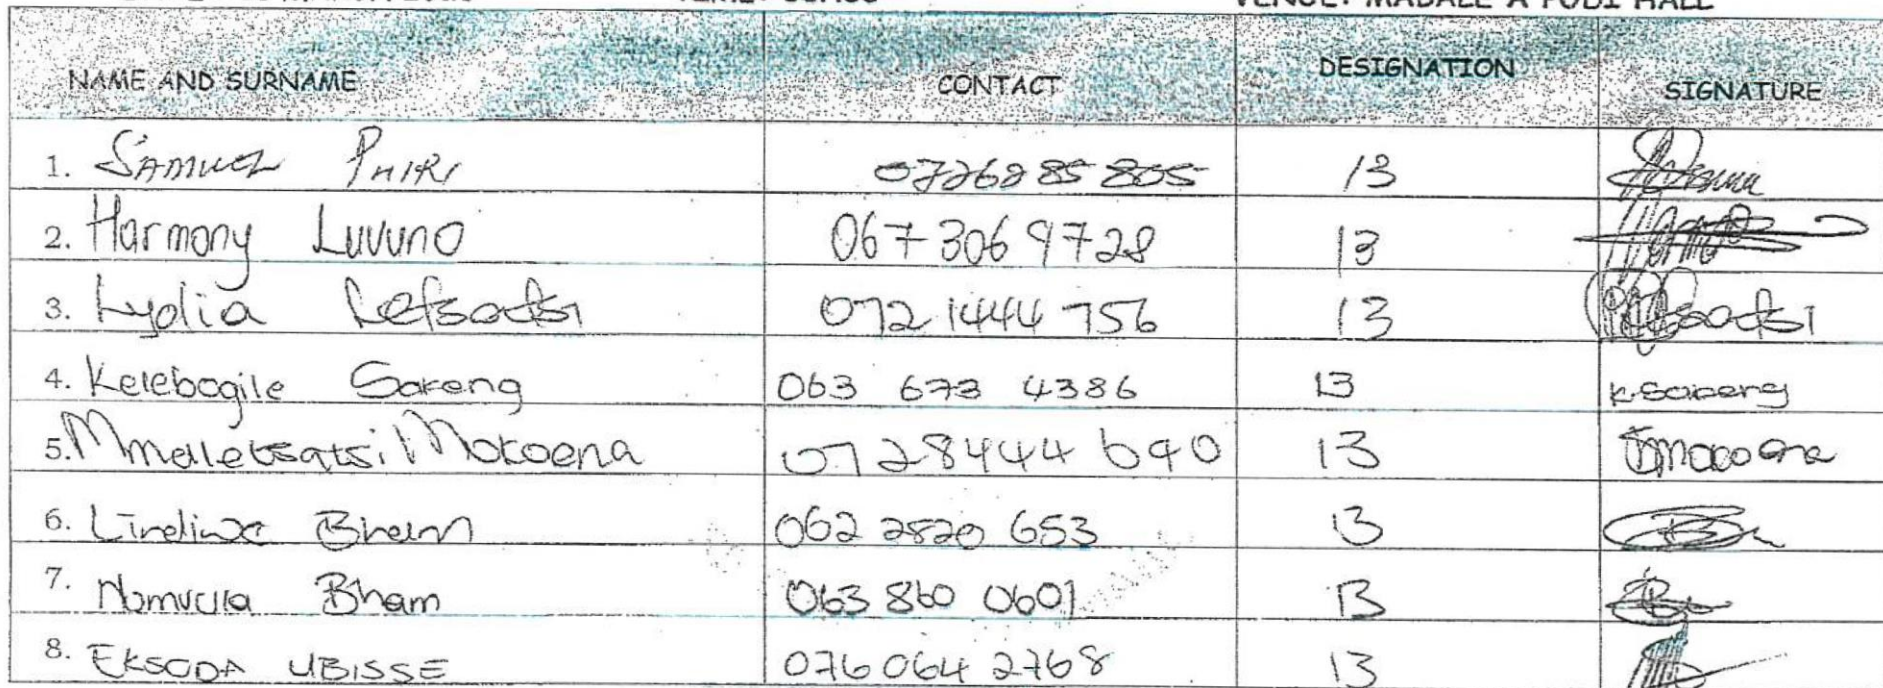 VENUE: MABALE A PODI HALL
NAME AND SURNAME CONTACT DESIGNATION SIGNATURE
1. SAMUEL PHIRI 0726285805 13
2. Harmony Luvuno 067 306 9728 13
3. Lydia Letsatsi 072 1444 756 13
4. Kelebogile Sareng 063 673 4386 13 K.Sareng
5. Mmaletsatsi Mokoena 0728444 690 13
6. Lindiwe Bham 062 2820 653 13
7. Nomvula Bham 063 860 0601 13
8. EKSODA UBISSE 076 064 2768 13